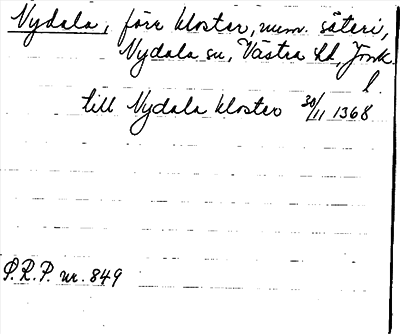 Nydala, förr kloster, num. säteri,
Nydala sn, Västra hd, Jönk.
l.
till Nydala kloster 30/11 1368
S.R.P. nr. 849